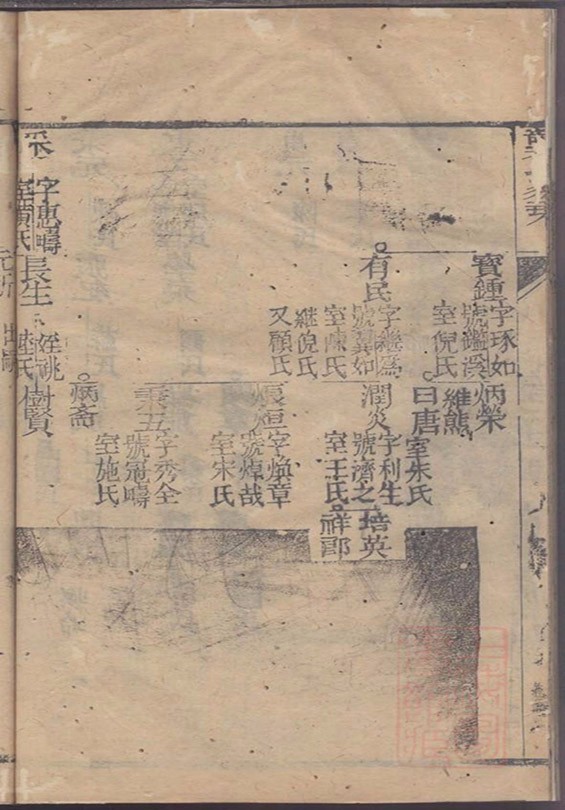 寶鍾
字琢如
號鑑溪
室倪氏
炳榮
維熊
曰唐
室朱氏
有民
字繼爲
號冀如
室陳氏
繼倪氏
又顧氏
潤炎
字利生
號濟之
室王氏
培英
祥郎
字煥章
號焯哉
室宋氏
秉五
字秀全
號冠疇
室施氏
炳斋
字惠疇
室黃氏
長生
姪祧
陸氏
樹賢